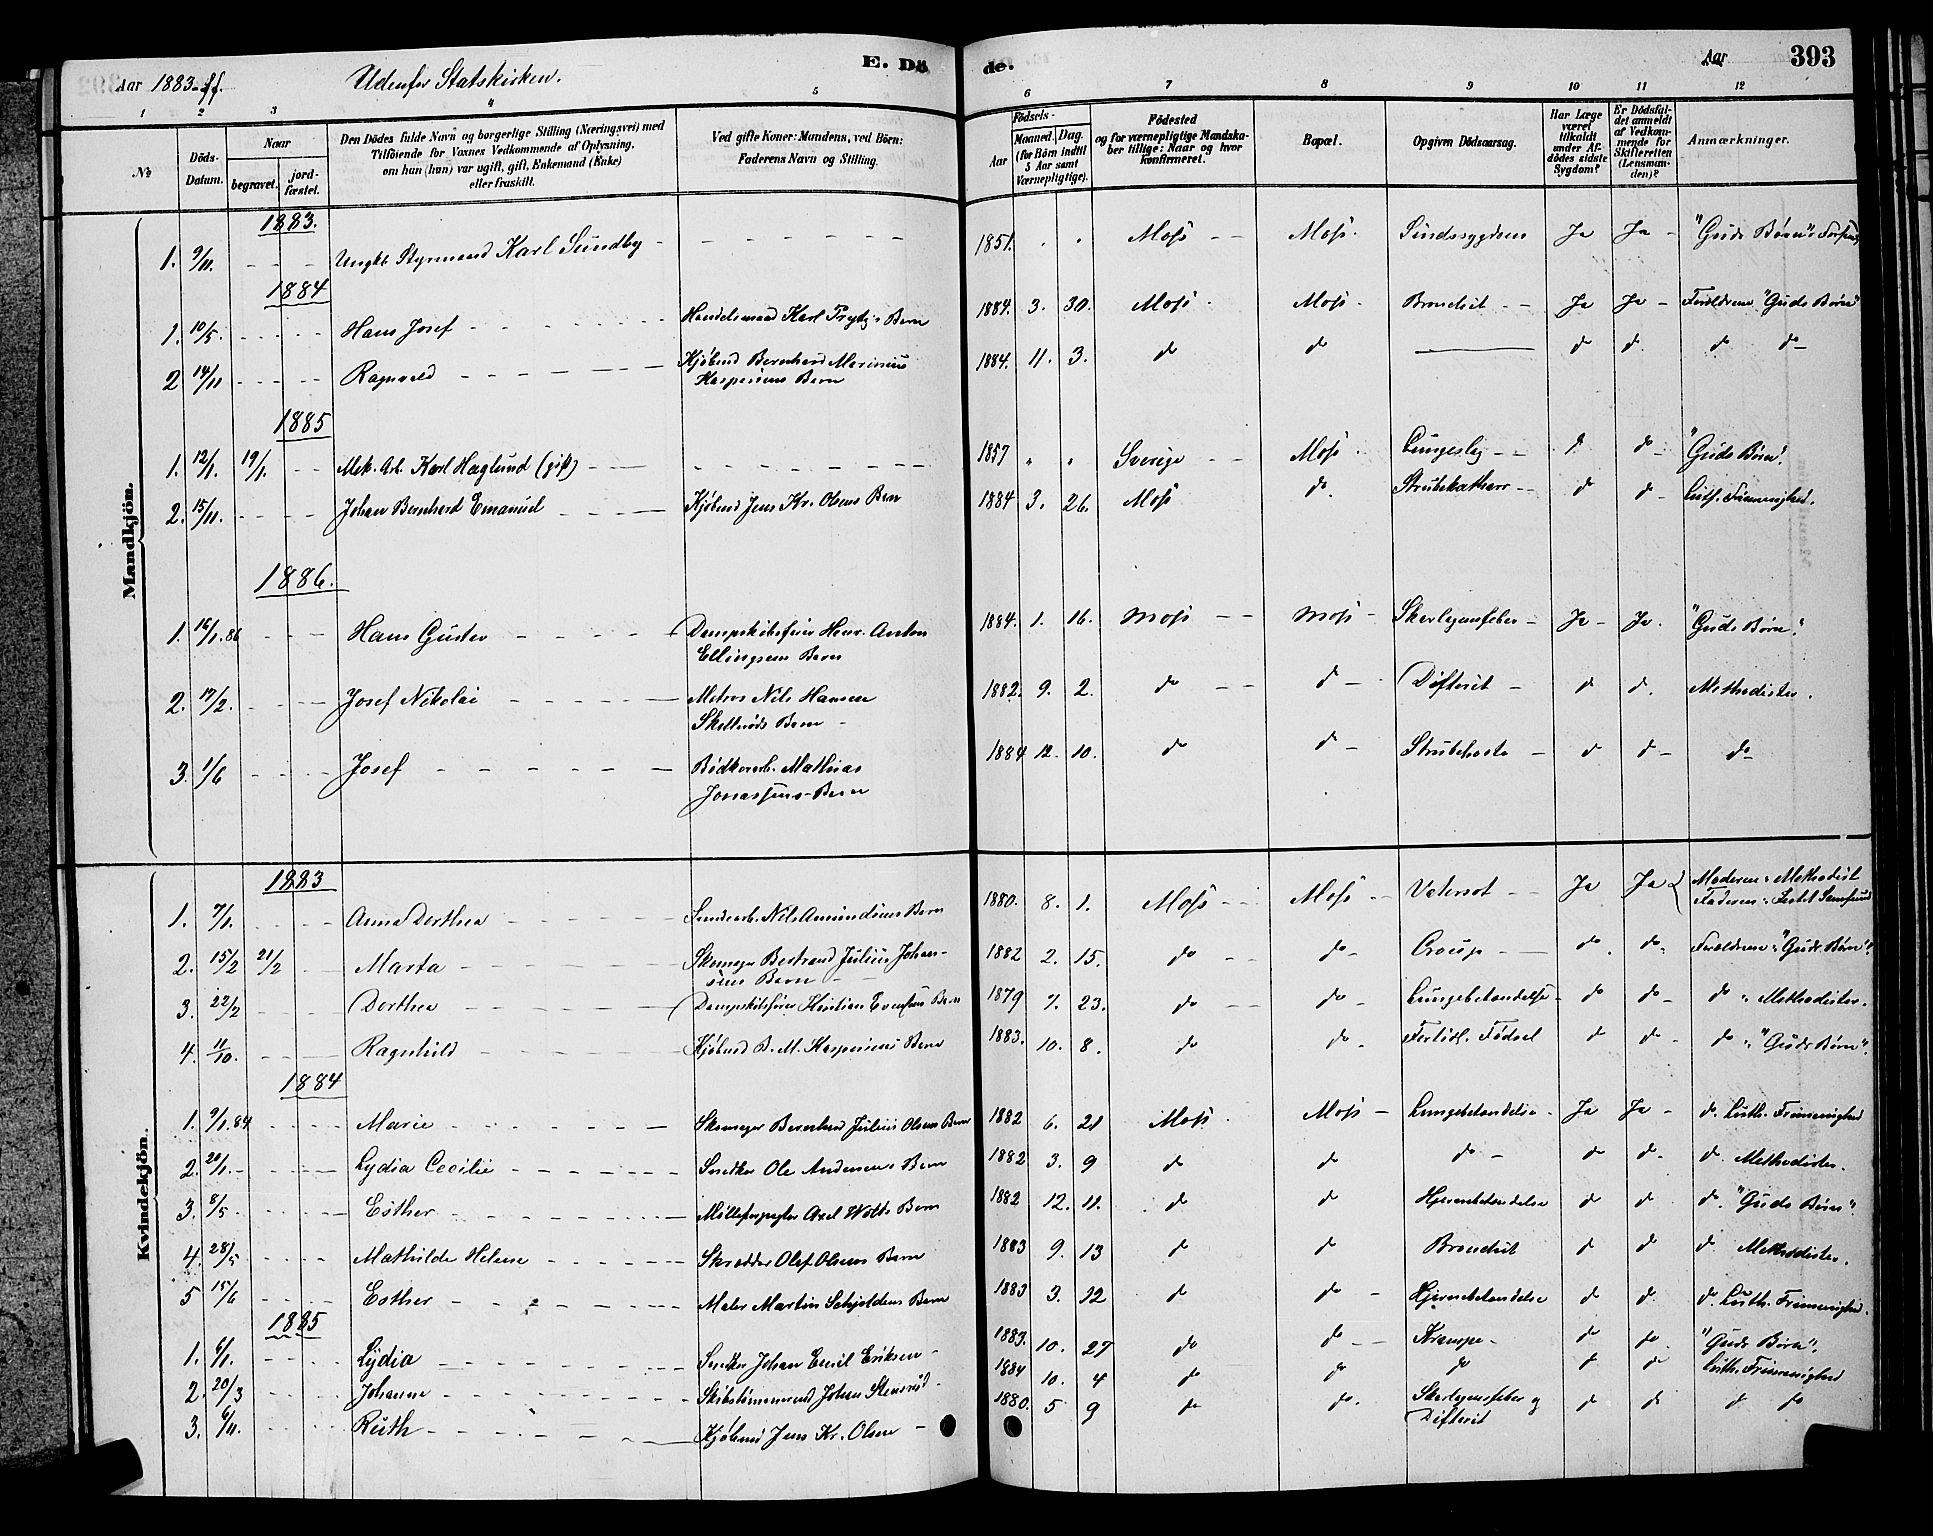 Aar 1883 ff. Udenfor Statskirken. E. Dö de. Aar 393
1 2 3 4 5 6 7 8 9 10 11 12
No
Döds-Datum.
Naar
begravet. jord-fæstet.
Den Dödes fulde Navn og borgerlige Stilling (Næringsvei) med
Tilföiende for Voxnes Vedkommende af Oplysning,
om han (hun) var ugift, gift, Enkemand (Enke)
eller fraskilt.
Ved gifte Koner: Mandens, ved Börn:
Faderens Navn og Stilling.
Födsels-
Aar Maaned. Dag.
(for Börn indtil
5 Aar samt
Værnepligtige).
Födested
og for værnepligtige Mandska-
ber tillige: Naar og hvor
konfirmeret.
Bopæl.
Opgiven Dödsaarsag.
Har Læge
været
tilkaldt
under Af-
dödes sidste
Sygdom?
Er Dödsfal-
det anmeldt
af Vedkom-
mende for
Skifteretten
(Lensman-
den)?
Anmærkninger.
Mandkjön.
1883.
1. 9/11. Ungk. Styrmand Karl Sundby 1851 Moss Moss Sindssygdom Ja Ja "Guds Børn"
1884
1. 10/5. Hans Josef Handelsmand Karl Børn 1884. 3. 30. Moss Moss Bronchit Ja Ja Forældrene "Guds Børn"
2 14/11 Ragnvald Kjøbmd Bernhard Marinius 1884. 11. 3. do do do do do do
Kaspersens Barn
1885
1. 12/1. 19/1. Mek. Arb. Karl Haglund (gift) 1857 " " Sverige Moss do do "Guds Børn".
2. 15/11. Johan Bernhard Emanuel Kjøbmd Jens Kr. Olsens Barn 1884 3. 26. Moss do. Strubekatharr do do Luth. Frimenighed.
1886.
1. 16/1. 86 Hans Gustav Dampskibsfører Henr. Anton 1884. 1. 16. Moss Moss Skarlagensfeber Ja Ja. "Guds Børn".
Ellingsens Barn
2. 17/2. Josef Nikolai Matros Nils Hansen 1882. 9. 2. do do Difterit do do. Methodister.
Barn
3. 1/6 Josef Bødkerarb. Mathias 1884 12. 10. do do Strubehoste do do do
Jonassens Barn
Kvindekjön.
1883
1. 7/1. Anna Dorthea Nils Amundsens Barn 1880. 8. 1. Moss Moss Vatersot Ja Ja Moderen: Methodist
Faderen: Samfund
2. 15/2 21/2 Marta Skomager Bertrand Julius Johan- 1882 2. 15. do do Croup do. do. Forældrene: "Guds Børn".
sens Barn
3. 22/2 Dorthea Dampskibsfører Kristian Evensens Barn 1879 7. 23. do do Lungebetændelse do do do: Methodister.
4. 11/10. Ragnhild Kjøbmd B. M. Kaspersens Barn 1883. 10. 8. do do. Fortidl. Fødsel do do do: "Guds Børn".
1884
1. 9/1. 84 Marie Skomager Bernhard Julius Olsens Barn 1882 6. 21 Moss Moss Lungebetændelse Ja Ja d. Luth. Frimenighed
2. 20/1. Lydia Cecilie Snedker Ole Andersens Barn 1882 3. 9 do do do do do. d. Methodister.
3. 8/5. Esther Axel Barn 1882 12. 11. do do Hjernebetændelse do do d. "Guds Børn".
4. 28/5 Mathilde Helene Skrædder Olaf Olsens Barn 1883 9. 13 do do Bronchit do do d. Methodister.
5 15/6 Esther Maler Martin Schjoldens Barn 1883 3. 12 do do Hjernebetændelse do do. d. Luth. Frimenighed.
1885
1. 6/1. Lydia Snedker Johan Emil Eriksen 1883. 10. 27 do do Krampe do do "Guds Børn".
2. 20/3 Johanne Skibstømmermd Johan 1884 10. 4 do do do do do Luth. Frimenighed
3. 6/11. Ruth Kjøbmd Jens Kr. Olsen 1880. 5 9 do do. Skarlagensfeber og do do do do
Difterit